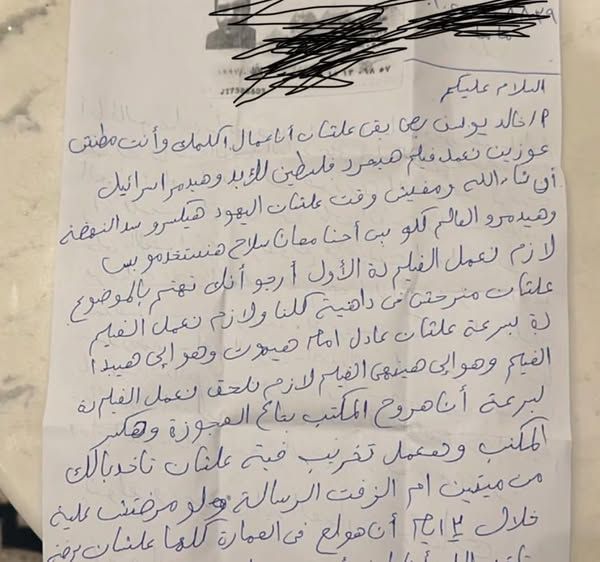 السلام عليكم
أ/ خالد يوسف بص بقى علشان أنا عمال اكلمك وأنت مطنش
عوزين نعمل فيلم هيحرر فلسطين للأبد وهيدمر اسرائيل
أن شاء الله ومفيش وقت علشان اليهود هيكسرو سد النهضة
وهيدمرو العالم كلو بس أحنا معانا سلاح هنستخدمو بس
لازم نعمل الفيلم دة الأول أرجو أنك تهتم بالموضوع
علشان منرحش فى داهية كلنا ولازم نعمل الفيلم
دة بسرعة علشان عادل امام هيموت وهو إلى هيبدأ
الفيلم وهو إلى هينهى الفيلم لازم نلحق نعمل الفيلم دة
بسرعة أنا هروح المكتب بتاع العجوزة وهكسر
المكتب وهعمل تخريب فيه علشان تاخد بالك
من ميتين ام الزفت الرسالة ولو مردتش عليه
خلال ٢ ايام أنا هولع فى العمارة كلها علشان